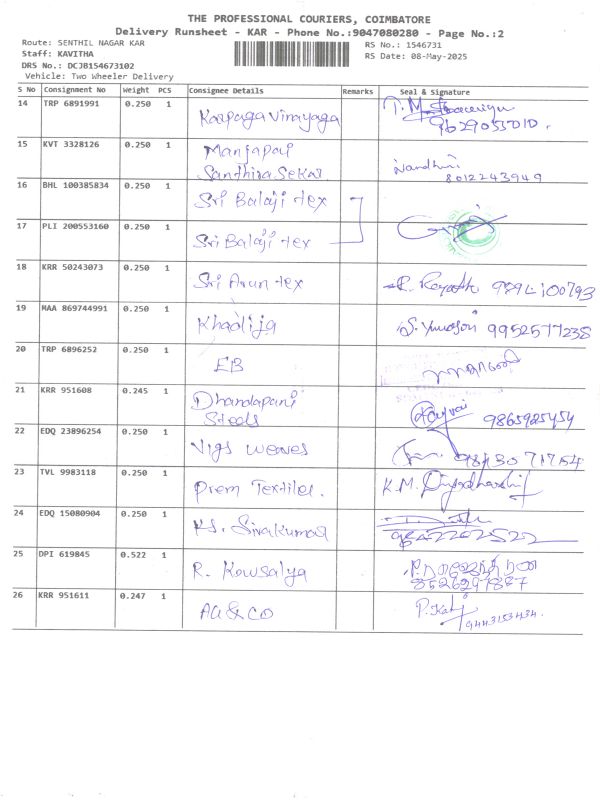 THE PROFESSIONAL COURIERS, COIMBATORE
Delivery Runsheet - KAR - Phone No.:9047080280 - Page No.:2
Route: SENTHIL NAGAR KAR
Staff: KAVITHA
DRS No.: DCJB154673102
Vehicle: Two Wheeler Delivery
RS No.: 1546731
RS Date: 08-May-2025
S No Consignment No Weight PCS Consignee Details Remarks Seal & Signature
14 TRP 6891991 0.250 1 Karpaga Vinayaga
15 KVT 3328126 0.250 1 Santhira Sekar Nandhini 8012243949
16 BHL 100385834 0.250 1 Sri Balaji tex
17 PLI 200553160 0.250 1 Sri Balaji tex
18 KRR 50243073 0.250 1 Sri Arun tex
19 MAA 869744991 0.250 1 Khadija 9952577238
20 TRP 6896252 0.250 1 EB
21 KRR 951608 0.245 1 Dhandapani Steels 9865925454
22 EDQ 23896254 0.250 1 Vigs weaves
23 TVL 9983118 0.250 1 Prem Textiles. K.M.
24 EDQ 15080904 0.250 1 KS. Sivakumar
25 DPI 619845 0.522 1 R. Kowsalya
26 KRR 951611 0.247 1 AG & CO 9443153434.